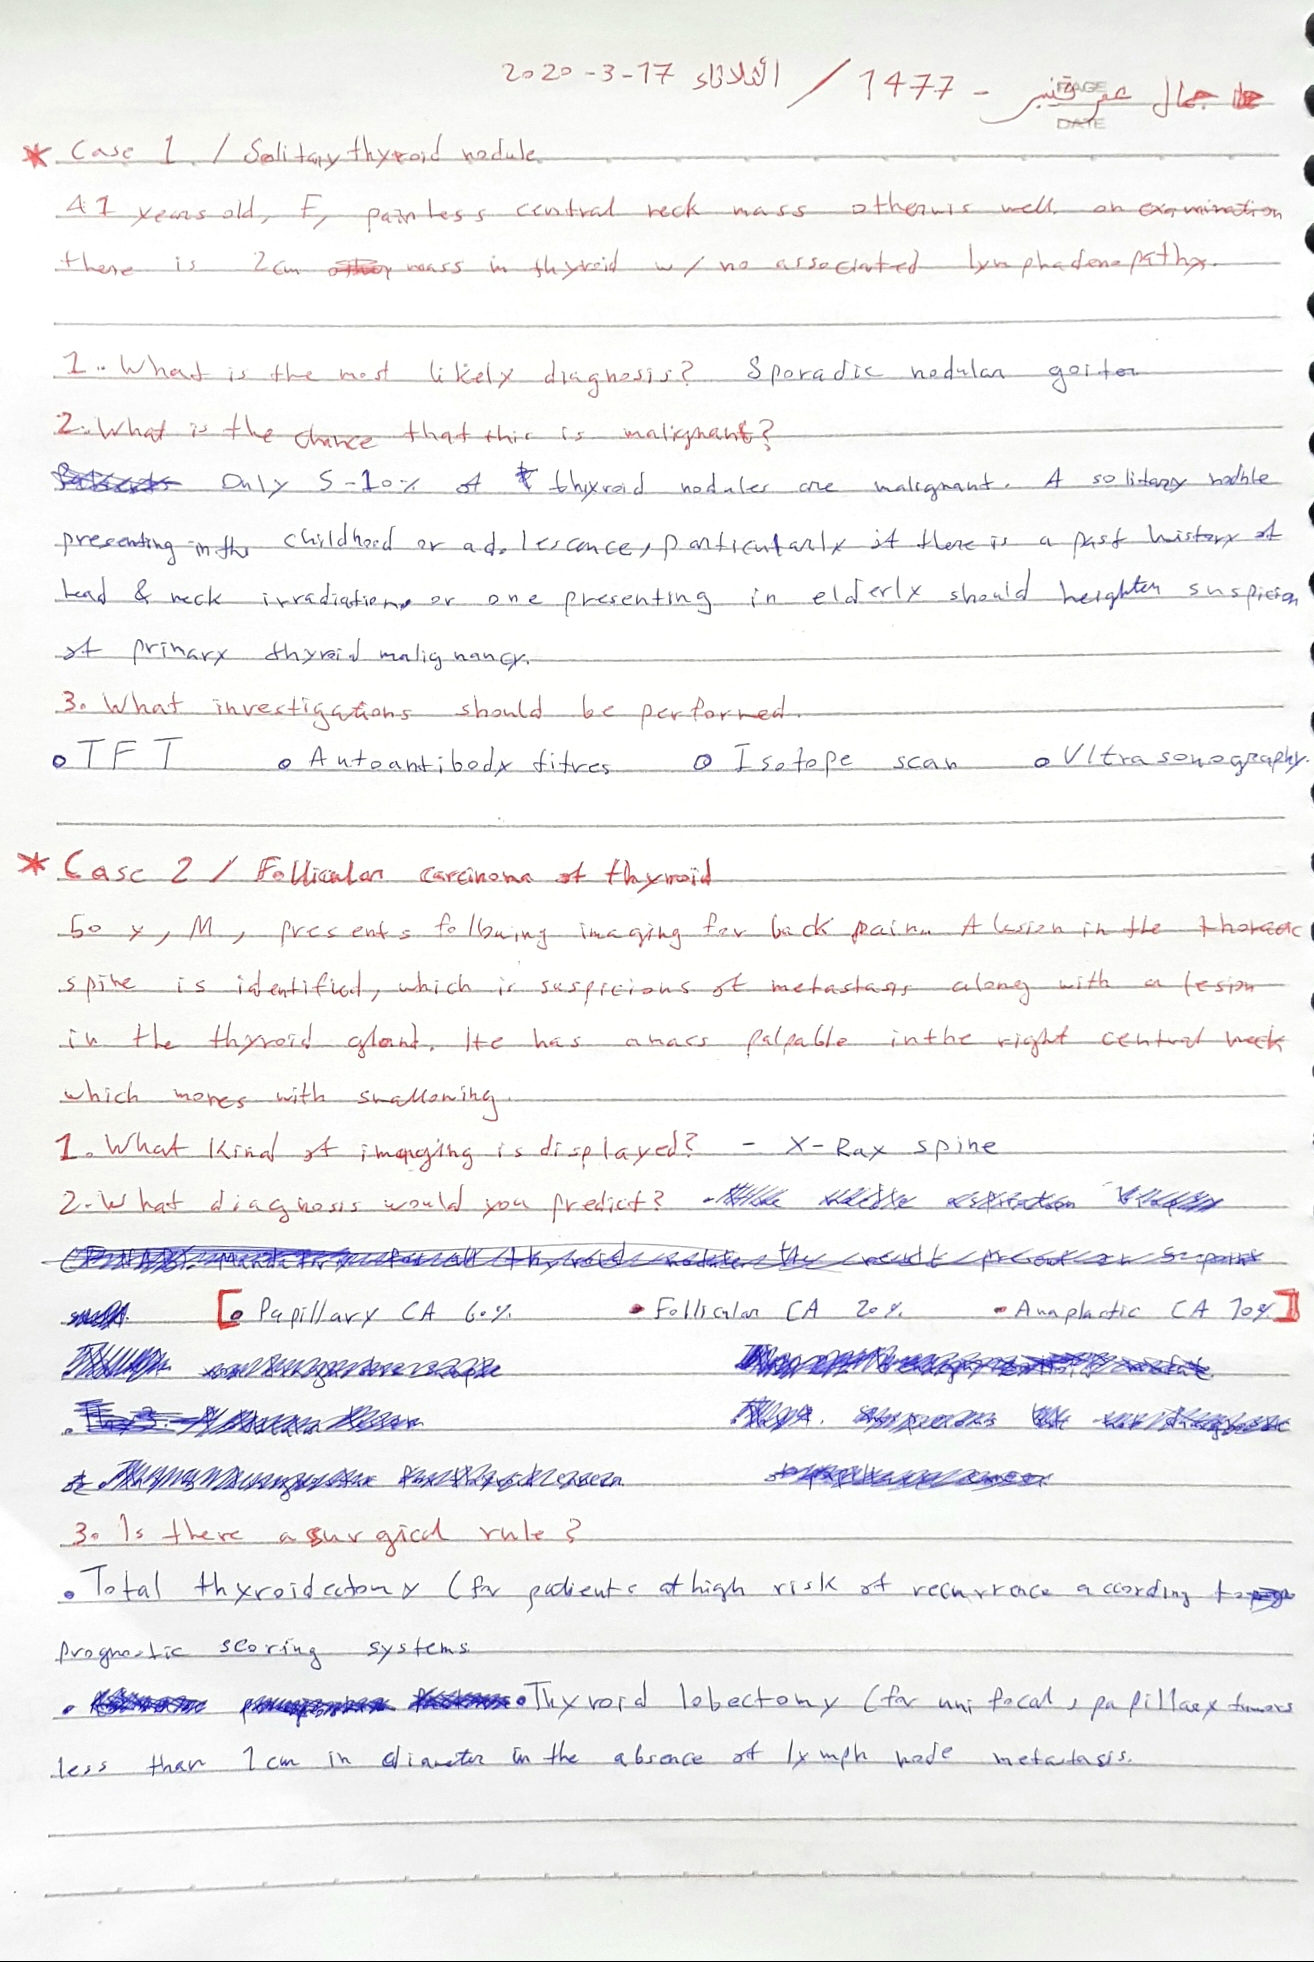 جمال عمر قنبر - 1477 / الثلاثاء 17-3-2020
PAGE
DATE
* Case 1 / Solitary thyroid nodule
41 years old, F, painless central neck mass otherwis well on examination
there is 2cm mass in thyroid w/ no associated lymphadenopathy.
1. What is the most likely diagnosis? Sporadic nodular goiter
2. What is the chance that this is malignant?
Only 5-10% of thyroid nodules are malignant. A solitary nodule
presenting in the childhood or adolescence, particularly if there is a past history of
head & neck irradiation, or one presenting in elderly should heighten suspicion
of primary thyroid malignancy.
3. What investigations should be performed.
• TFT • Autoantibody titres • Isotope scan • Ultrasonography.
* Case 2 / Follicular carcinoma of thyroid
60 y, M, presents following imaging for back pain. A lesion in the thoracic
spine is identified, which is suspicions of metastasis along with a lesion
in the thyroid gland. He has a mass palpable in the right central neck
which moves with swallowing.
1. What kind of imaging is displayed? - X-Ray spine
2. What diagnosis would you predict?
[• Papillary CA 60% • Follicular CA 20% • Anaplastic CA 10%]
3. Is there a surgical rule?
• Total thyroidectomy (for patients at high risk of recurrence according to
prognostic scoring systems
• Thyroid lobectomy (for unifocal, papillary tumors
less than 1 cm in diameter in the absence of lymph node metastasis.